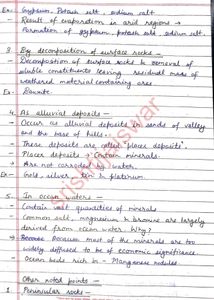 Ex:- Gypsum, Potash salt, sodium salt.
- Result of evaporation in arid regions →
Formation of gypsum, potash salt, sodium salt.
3. By decomposition of surface rocks -
- Decomposition of surface rocks & removal of
soluble constituents leaving residual mass of
weathered material containing ores
Ex:- Bauxite.
4. As alluvial deposits -
- Occur as alluvial deposits in sands of valley
and the base of hills.
- These deposits are called "placer deposits".
- Placer deposits → Contain minerals
→ Are not corroded by water.
Ex - Gold, silver, tin & platinum.
5. In ocean waters -
- Contain vast quantities of minerals
- Common salt, magnesium & bromine are largely
derived from ocean water. Why?
→ Because most of the minerals are too
widely diffused to be of economic significance
- Ocean beds rich in - Manganese nodules.
Other noted points -
1 Peninsular rocks -
krishnaiswar